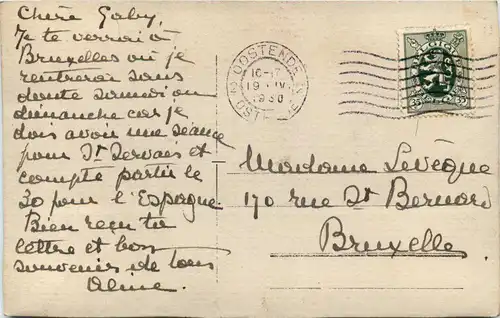 Chère Gaby,
Je te verrai à
Bruxelles où je
rentrerai sans
doute samedi ou
dimanche car je
dois avoir une séance
pour St Servais et
compte partir le
30 pour l'Espagne.
Bien reçu ta
lettre et bons
souvenirs de tous
OOSTENDE
16-17
19 IV
1930
OSTENDE
35
35
Madame Levêque
170 rue St Bernard
Bruxelles